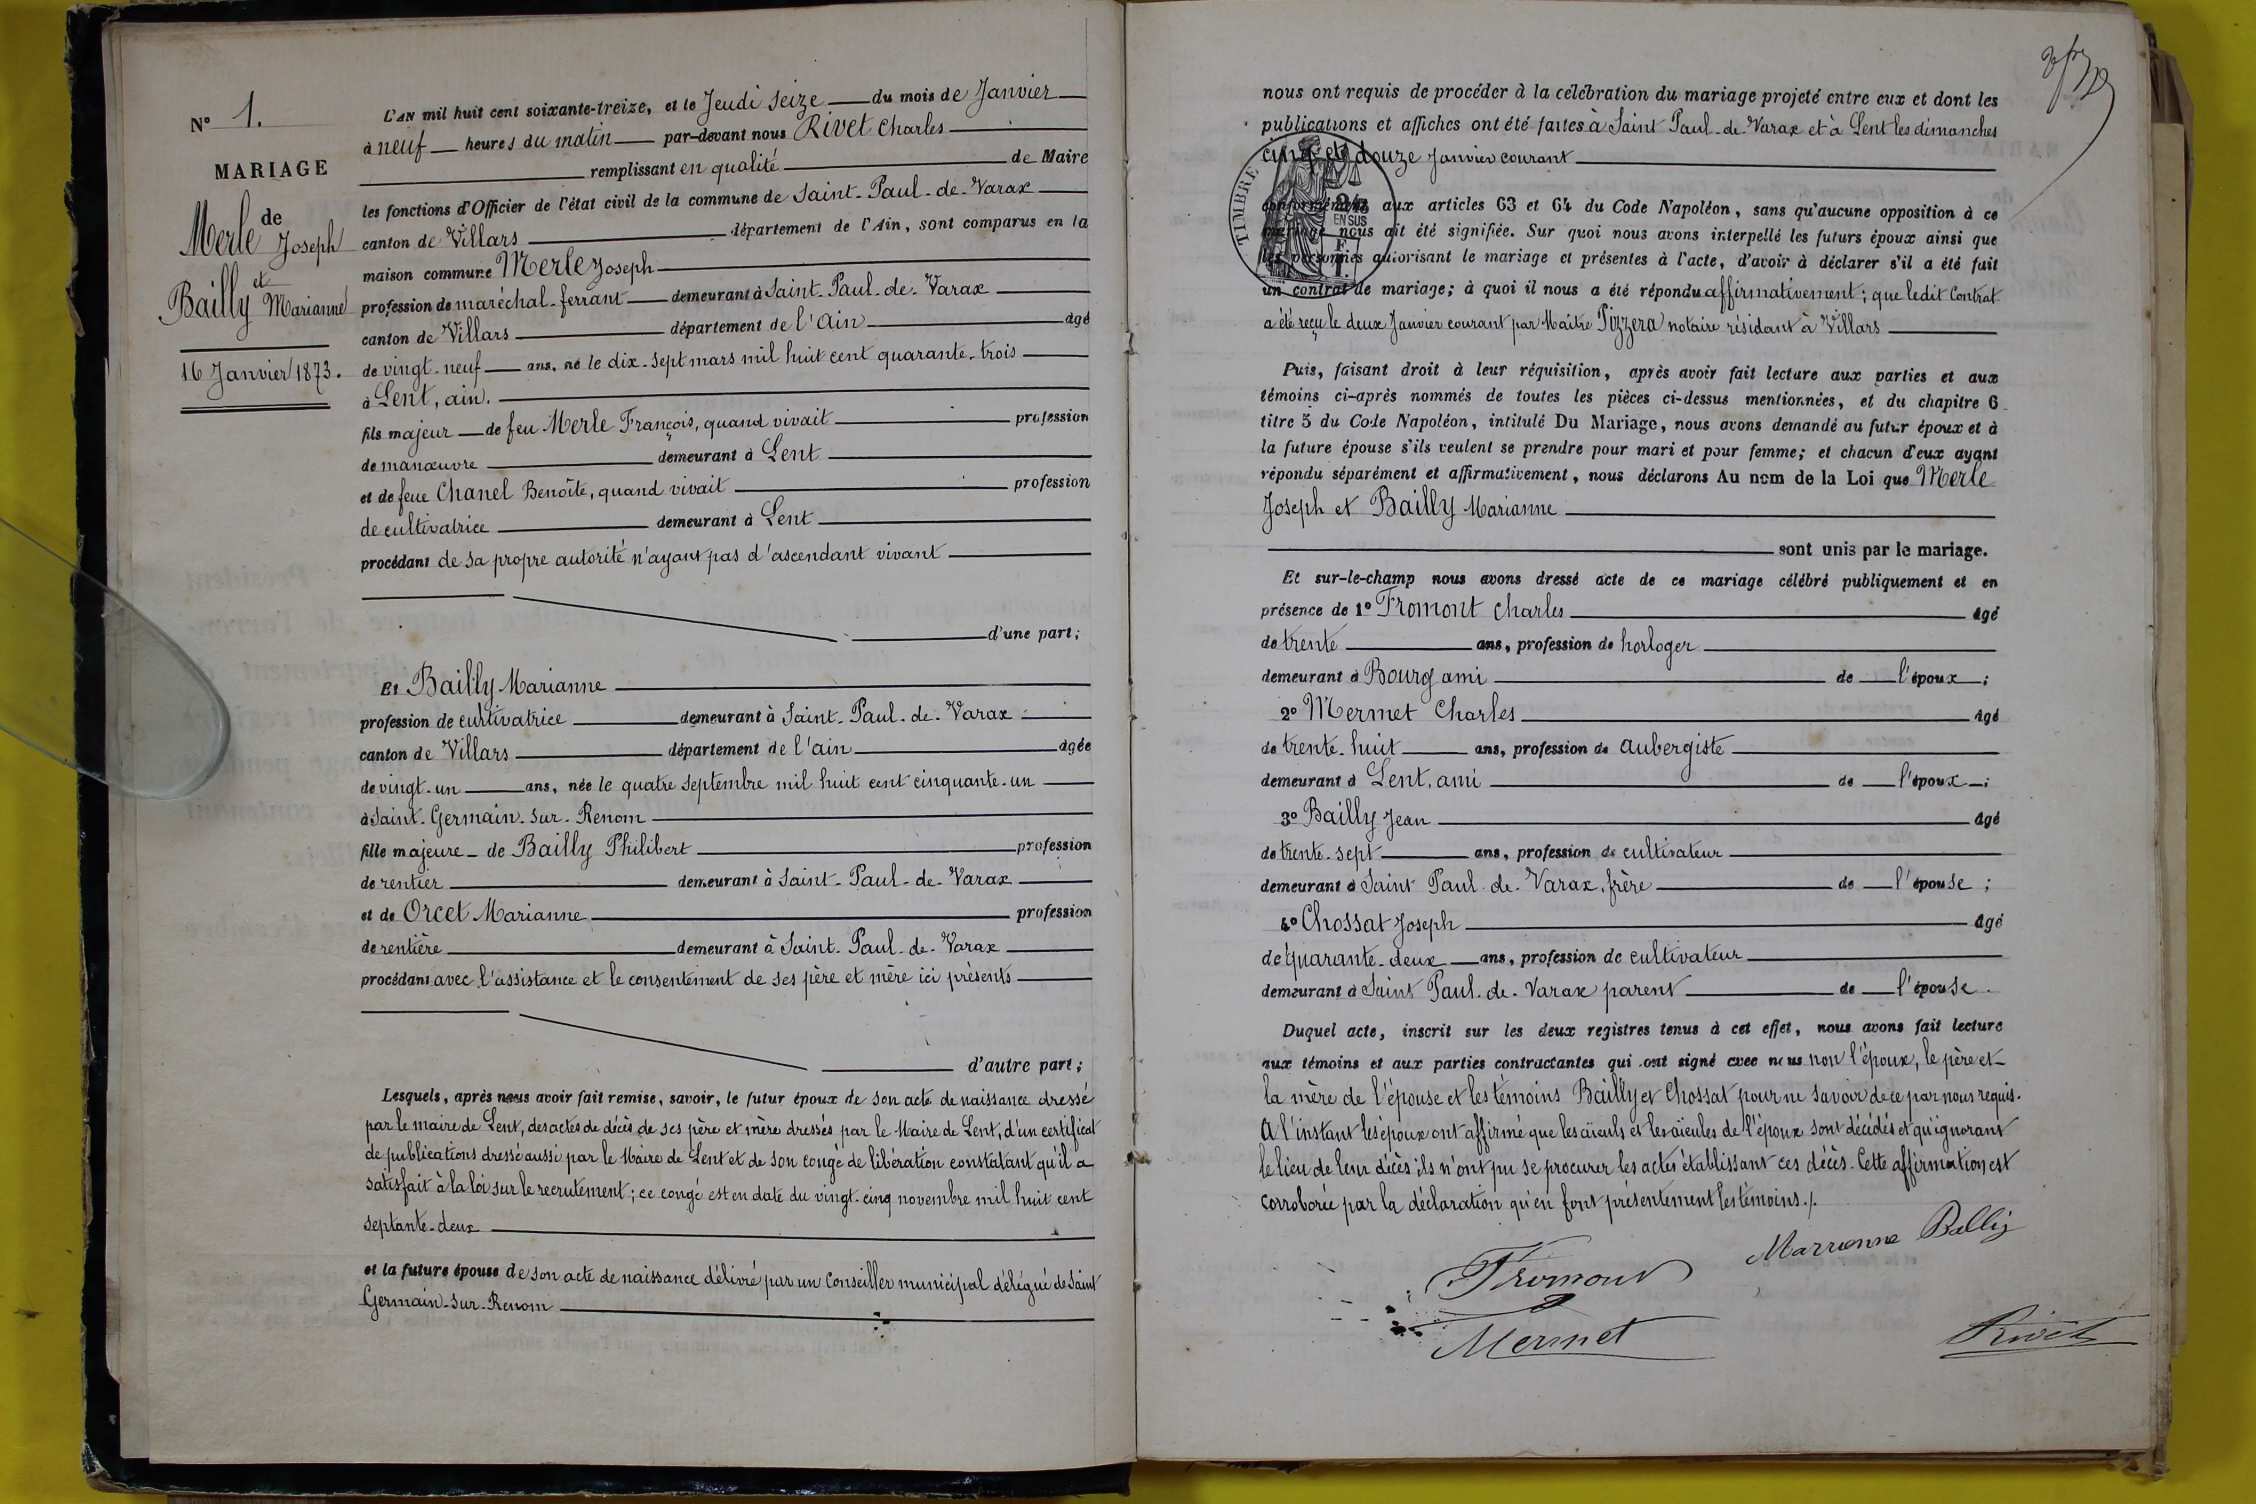 N° 1.
MARIAGE
de
Merle Joseph
et
Bailly Marianne
16 Janvier 1873.
L'AN mil huit cent soixante-treize, et le Jeudi seize du mois de Janvier
à neuf heures du matin par-devant nous Rivet Charles
remplissant en qualité de Maire
les fonctions d'Officier de l'état civil de la commune de Saint-Paul-de-Varax
canton de Villars département de l'Ain, sont comparus en la
maison commune Merle Joseph
profession de maréchal-ferrant demeurant à Saint-Paul-de-Varax
canton de Villars département de l'ain âgé
de vingt-neuf ans, né le dix-sept mars mil huit cent quarante-trois
à Lent, ain.
fils majeur de feu Merle François, quand vivait profession
de manœuvre demeurant à Lent
et de feue Chanel Benoîte, quand vivait profession
de cultivatrice demeurant à Lent
procédant de sa propre autorité n'ayant pas d'ascendant vivant
d'une part;
Et Bailly Marianne
profession de cultivatrice demeurant à Saint-Paul-de-Varax
canton de Villars département de l'ain âgée
de vingt-un ans, née le quatre septembre mil huit cent cinquante-un
à Saint-Germain-sur-Renom
fille majeure de Bailly Philibert profession
de rentier demeurant à Saint-Paul-de-Varax
et de Orcet Marianne profession
de rentière demeurant à Saint-Paul-de-Varax
procédant avec l'assistance et le consentement de ses père et mère ici présents
d'autre part;
Lesquels, après nous avoir fait remise, savoir, le futur époux de son acte de naissance dressé
par le maire de Lent, des actes de décès de ses père et mère dressés par le Maire de Lent, d'un certificat
de publications dressé aussi par le Maire de Lent et de son congé de libération constatant qu'il a
satisfait à la loi sur le recrutement; ce congé est en date du vingt-cinq novembre mil huit cent
septante-deux
et la future épouse de son acte de naissance délivré par un Conseiller municipal délégué de Saint
Germain-sur-Renom
nous ont requis de procéder à la célébration du mariage projeté entre eux et dont les
publications et affiches ont été faites à Saint Paul-de-Varax et à Lent les dimanches
cinq et douze Janvier courant
TIMBRE
2/10
EN SUS
conformément aux articles 63 et 64 du Code Napoléon, sans qu'aucune opposition à ce
mariage nous ait été signifiée. Sur quoi nous avons interpellé les futurs époux ainsi que
les personnes autorisant le mariage et présentes à l'acte, d'avoir à déclarer s'il a été fait
un contrat de mariage; à quoi il nous a été répondu affirmativement; que ledit Contrat
a été reçu le deux Janvier courant par Maître Pizzera notaire résidant à Villars
Puis, faisant droit à leur réquisition, après avoir fait lecture aux parties et aux
témoins ci-après nommés de toutes les pièces ci-dessus mentionnées, et du chapitre 6
titre 5 du Code Napoléon, intitulé Du Mariage, nous avons demandé au futur époux et à
la future épouse s'ils veulent se prendre pour mari et pour femme; et chacun d'eux ayant
répondu séparément et affirmativement, nous déclarons Au nom de la Loi que Merle
Joseph et Bailly Marianne
sont unis par le mariage.
Et sur-le-champ nous avons dressé acte de ce mariage célébré publiquement et en
présence de 1° Fromont Charles âgé
de trente ans, profession de horloger
demeurant à Bourg ami de l'époux;
2° Mermet Charles âgé
de trente-huit ans, profession de aubergiste
demeurant à Lent, ami de l'époux;
3° Bailly Jean âgé
de trente-sept ans, profession de cultivateur
demeurant à Saint Paul-de-Varax, frère de l'épouse;
4° Chossat Joseph âgé
de quarante-deux ans, profession de cultivateur
demeurant à Saint Paul-de-Varax parent de l'épouse.
Duquel acte, inscrit sur les deux registres tenus à cet effet, nous avons fait lecture
aux témoins et aux parties contractantes qui ont signé avec nous non l'époux, le père et
la mère de l'épouse et les témoins Bailly et Chossat pour ne savoir de ce par nous requis.
A l'instant les époux ont affirmé que les aïeuls et les aïeules de l'époux sont décédés et qu'ignorant
le lieu de leur décès ils n'ont pu se procurer les actes établissant ces décès. Cette affirmation est
corroborée par la déclaration qu'en font présentement les témoins./.
Marianne Bailly
Fromont
Mermet
Rivet